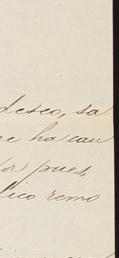 deseo, sa
ha cau
por pues,
lico remo